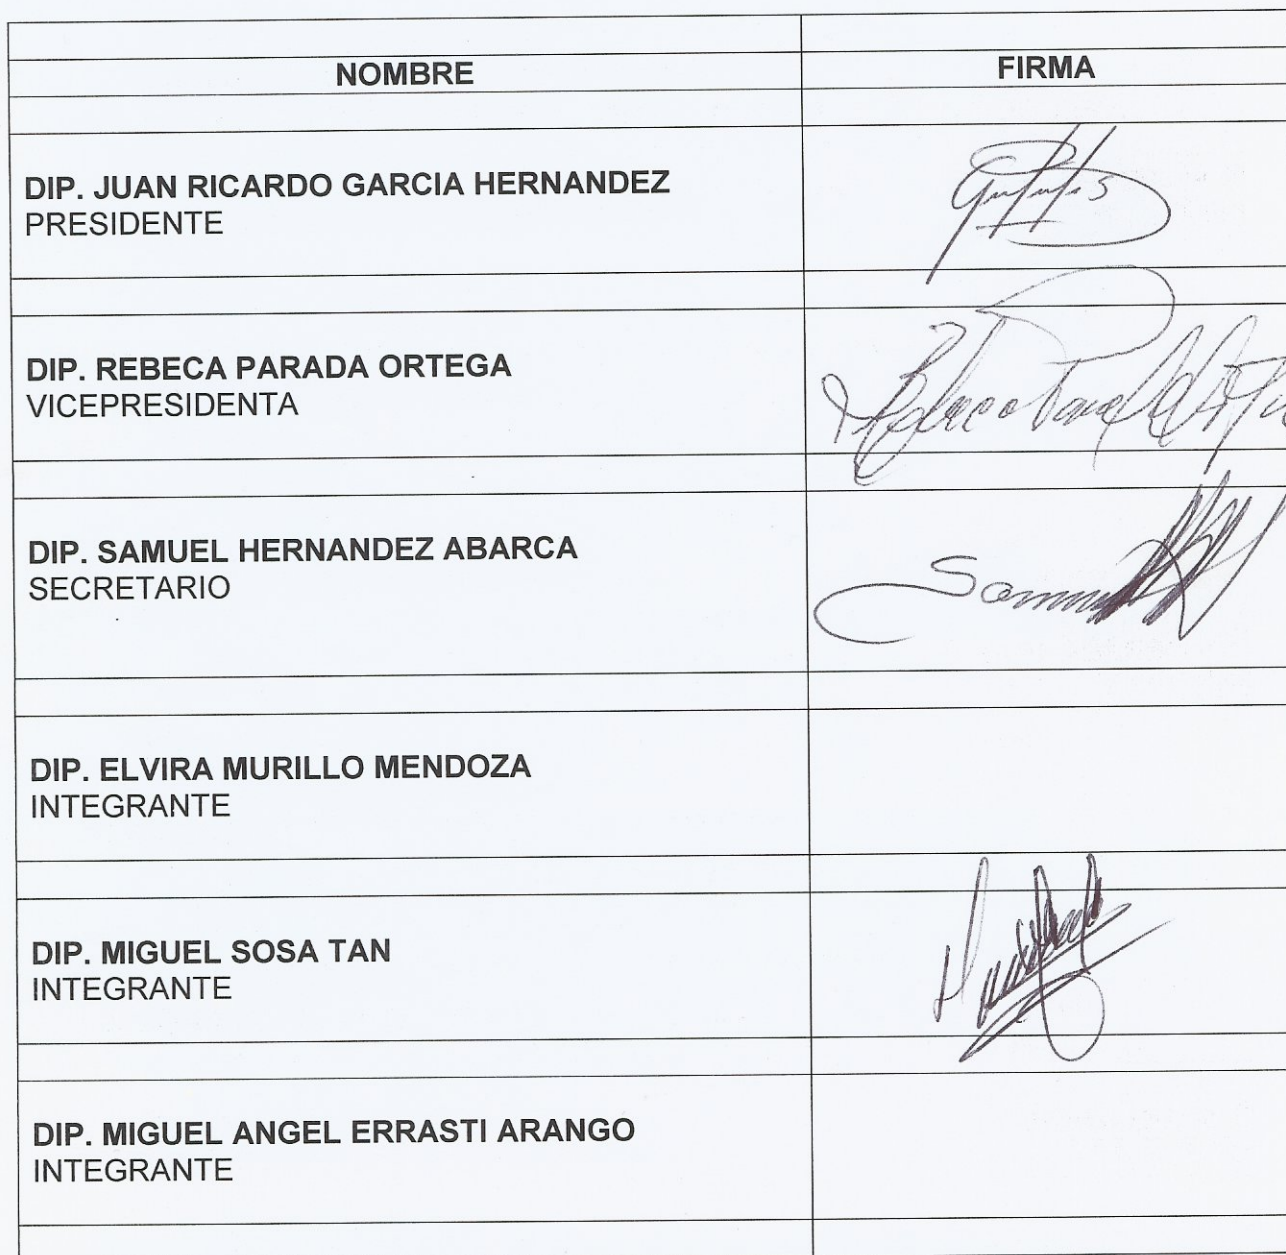 NOMBRE
FIRMA
DIP. JUAN RICARDO GARCIA HERNANDEZ
PRESIDENTE
DIP. REBECA PARADA ORTEGA
VICEPRESIDENTA
DIP. SAMUEL HERNANDEZ ABARCA
SECRETARIO
DIP. ELVIRA MURILLO MENDOZA
INTEGRANTE
DIP. MIGUEL SOSA TAN
INTEGRANTE
DIP. MIGUEL ANGEL ERRASTI ARANGO
INTEGRANTE